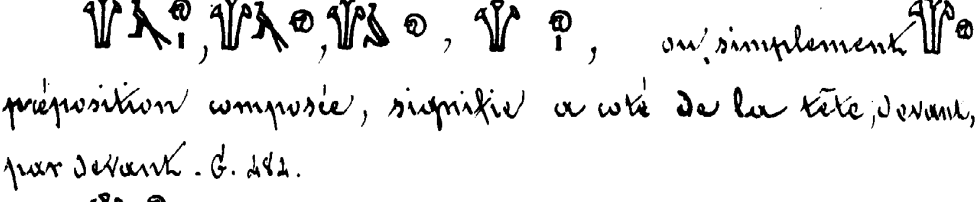 , , , , ou simplement
préposition composée, signifie a coté de la tête, devant,
par devant. G. 482.